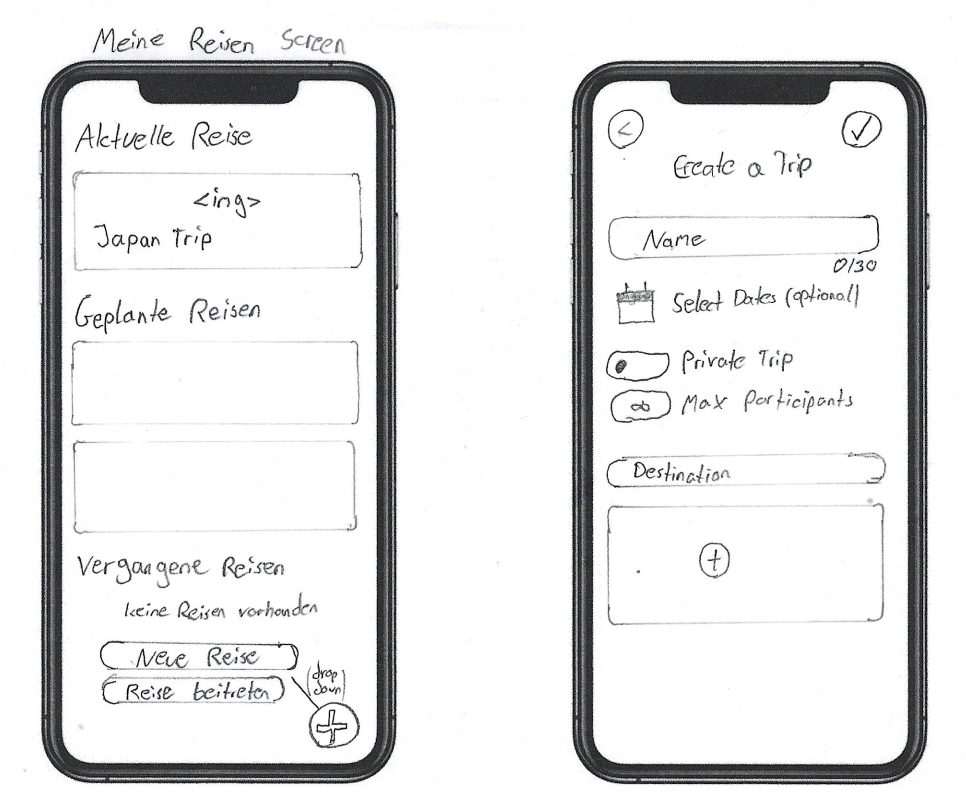 Meine Reisen Screen
Aktuelle Reise
<ing>
Japan Trip
Geplante Reisen
Vergangene Reisen
keine Reisen vorhanden
Neue Reise
(drop down)
Reise beitreten
+
<
✓
Create a Trip
Name
0/30
Select Dates (optional)
Private Trip
∞ Max Participants
Destination
+